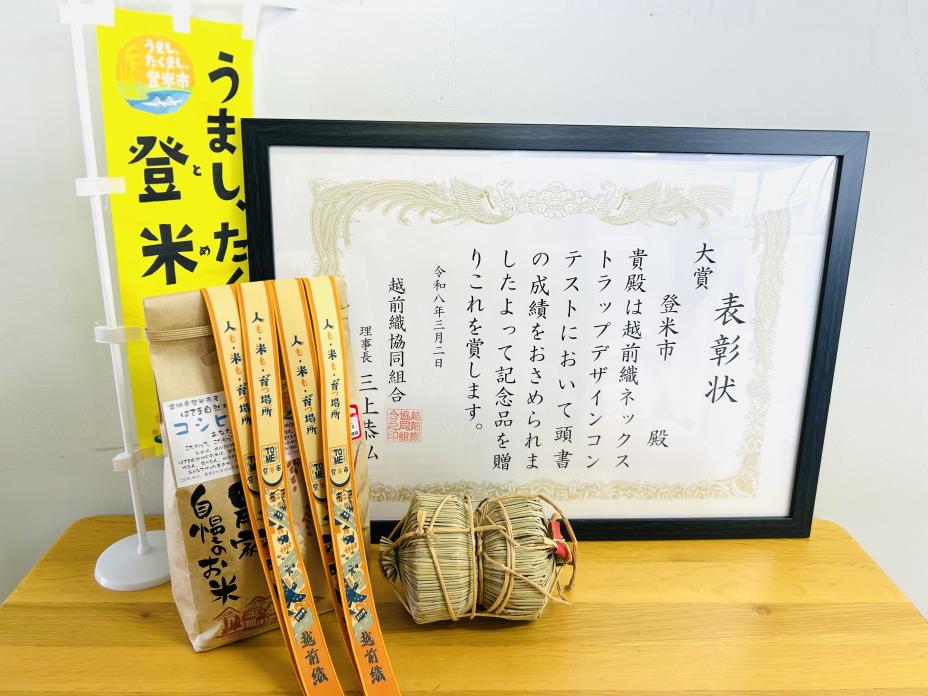 表彰状
大賞
登米市 殿
貴殿は越前織ネックス
トラップデザインコン
テストにおいて頭書
の成績をおさめられま
したよって記念品を贈
りこれを賞します。
令和八年三月二日
越前織協同組合
理事長 三上恭
うまし、た
登米
とめ
うまし、
たくまし、
登米市
人も・米も・育つ場所
人も・米も・育つ場所
人も・米も・育つ場所
人も・米も・育つ場所
TOME
登米市
TOME
登米市
越前織
越前織
宮城県登米市産
はさま自然
コシヒ
自慢のお米